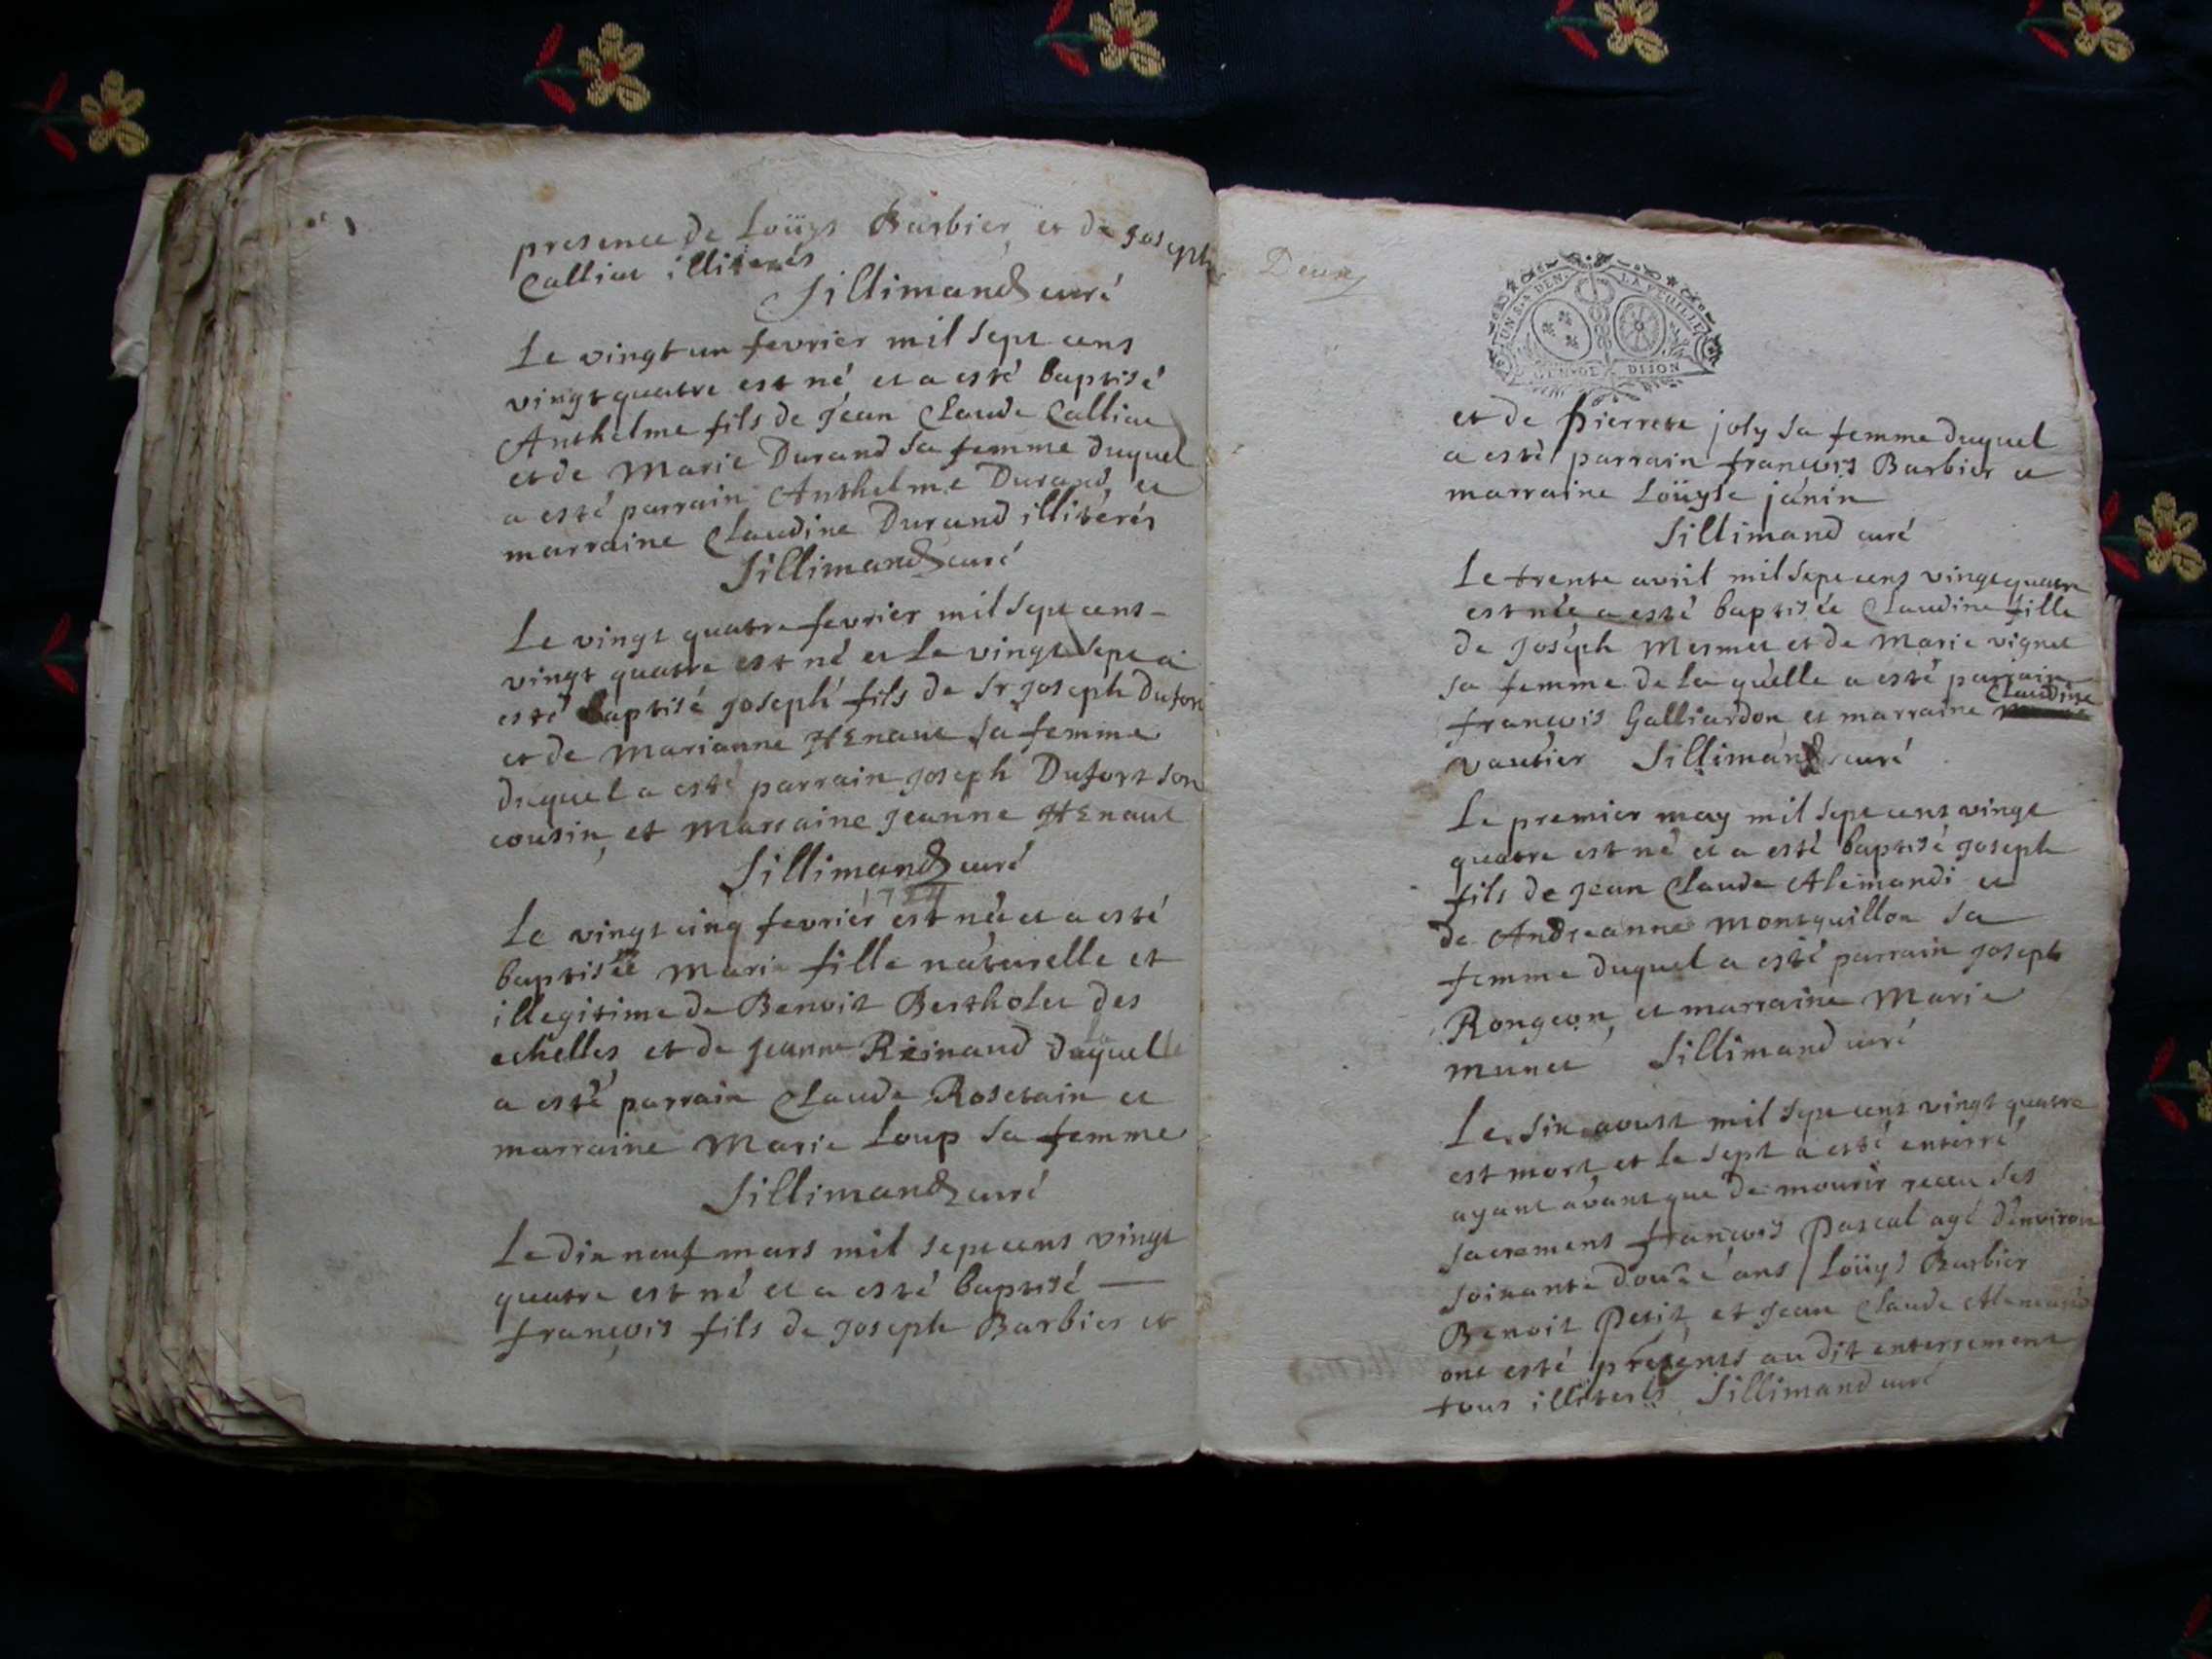 presence de Loüys Barbier et de Joseph
Calliat illiterés
Sillimand curé
Le vingt un fevrier mil sept cens
vingt quatre est né et a esté baptisé
Anthelme fils de Jean Claude Calliat
et de Marie Durand sa femme duquel
a esté parrain Anthelme Durand et
marraine Claudine Durand illiterés
Sillimand curé
Le vingt quatre fevrier mil sept cens
vingt quatre est né et le vingt sept a
esté baptisé Joseph fils de Sr Joseph Dufort
et de Marianne HEnaut sa femme
duquel a esté parrain Joseph Dufort son
cousin et Marraine Jeanne HEnaut
Sillimand curé
1724
Le vingt cinq fevrier est née et a esté
baptisée Marie fille naturelle et
illegitime de Benoit Bertholet des
echelles et de Jeanne Reinaud daquelle
a esté parrain Claude Rosetain et
marraine Marie Loup sa femme
Sillimand curé
Le dix neuf mars mil sept cens vingt
quatre est né et a esté baptisé
françois fils de Joseph Barbier et
Deux
UN S. 4 DEN. LA FEUILLE
GEN. DE DIJON
et de Pierrete joly sa femme duquel
a esté parrain françois Barbier et
marraine Loüyse janin
Sillimand curé
Le trente avril mil sept cens vingt quatre
est née a esté baptisée Claudine fille
de Joseph Mermet et de Marie vignet
sa femme de laquelle a esté parrain
françois Galliardon et marraine Claudine
vautier Sillimand curé
Le premier may mil sept cens vingt
quatre est né et a esté baptisé Joseph
fils de Jean Claude Alemandi et
de Andreanne Montquillon sa
femme duquel a esté parrain Joseph
Rongeon et marraine Marie
munet Sillimand curé
Le six aoust mil sept cens vingt quatre
est mort et le sept a esté enterré
ayant avant que de mourir receu ses
sacremens françois Pascal agé d'environ
soixante douze ans Loüys Barbier
Benoit Petit et Jean Claude
ont esté présents au dit enterrement
tous illiterés Sillimand curé